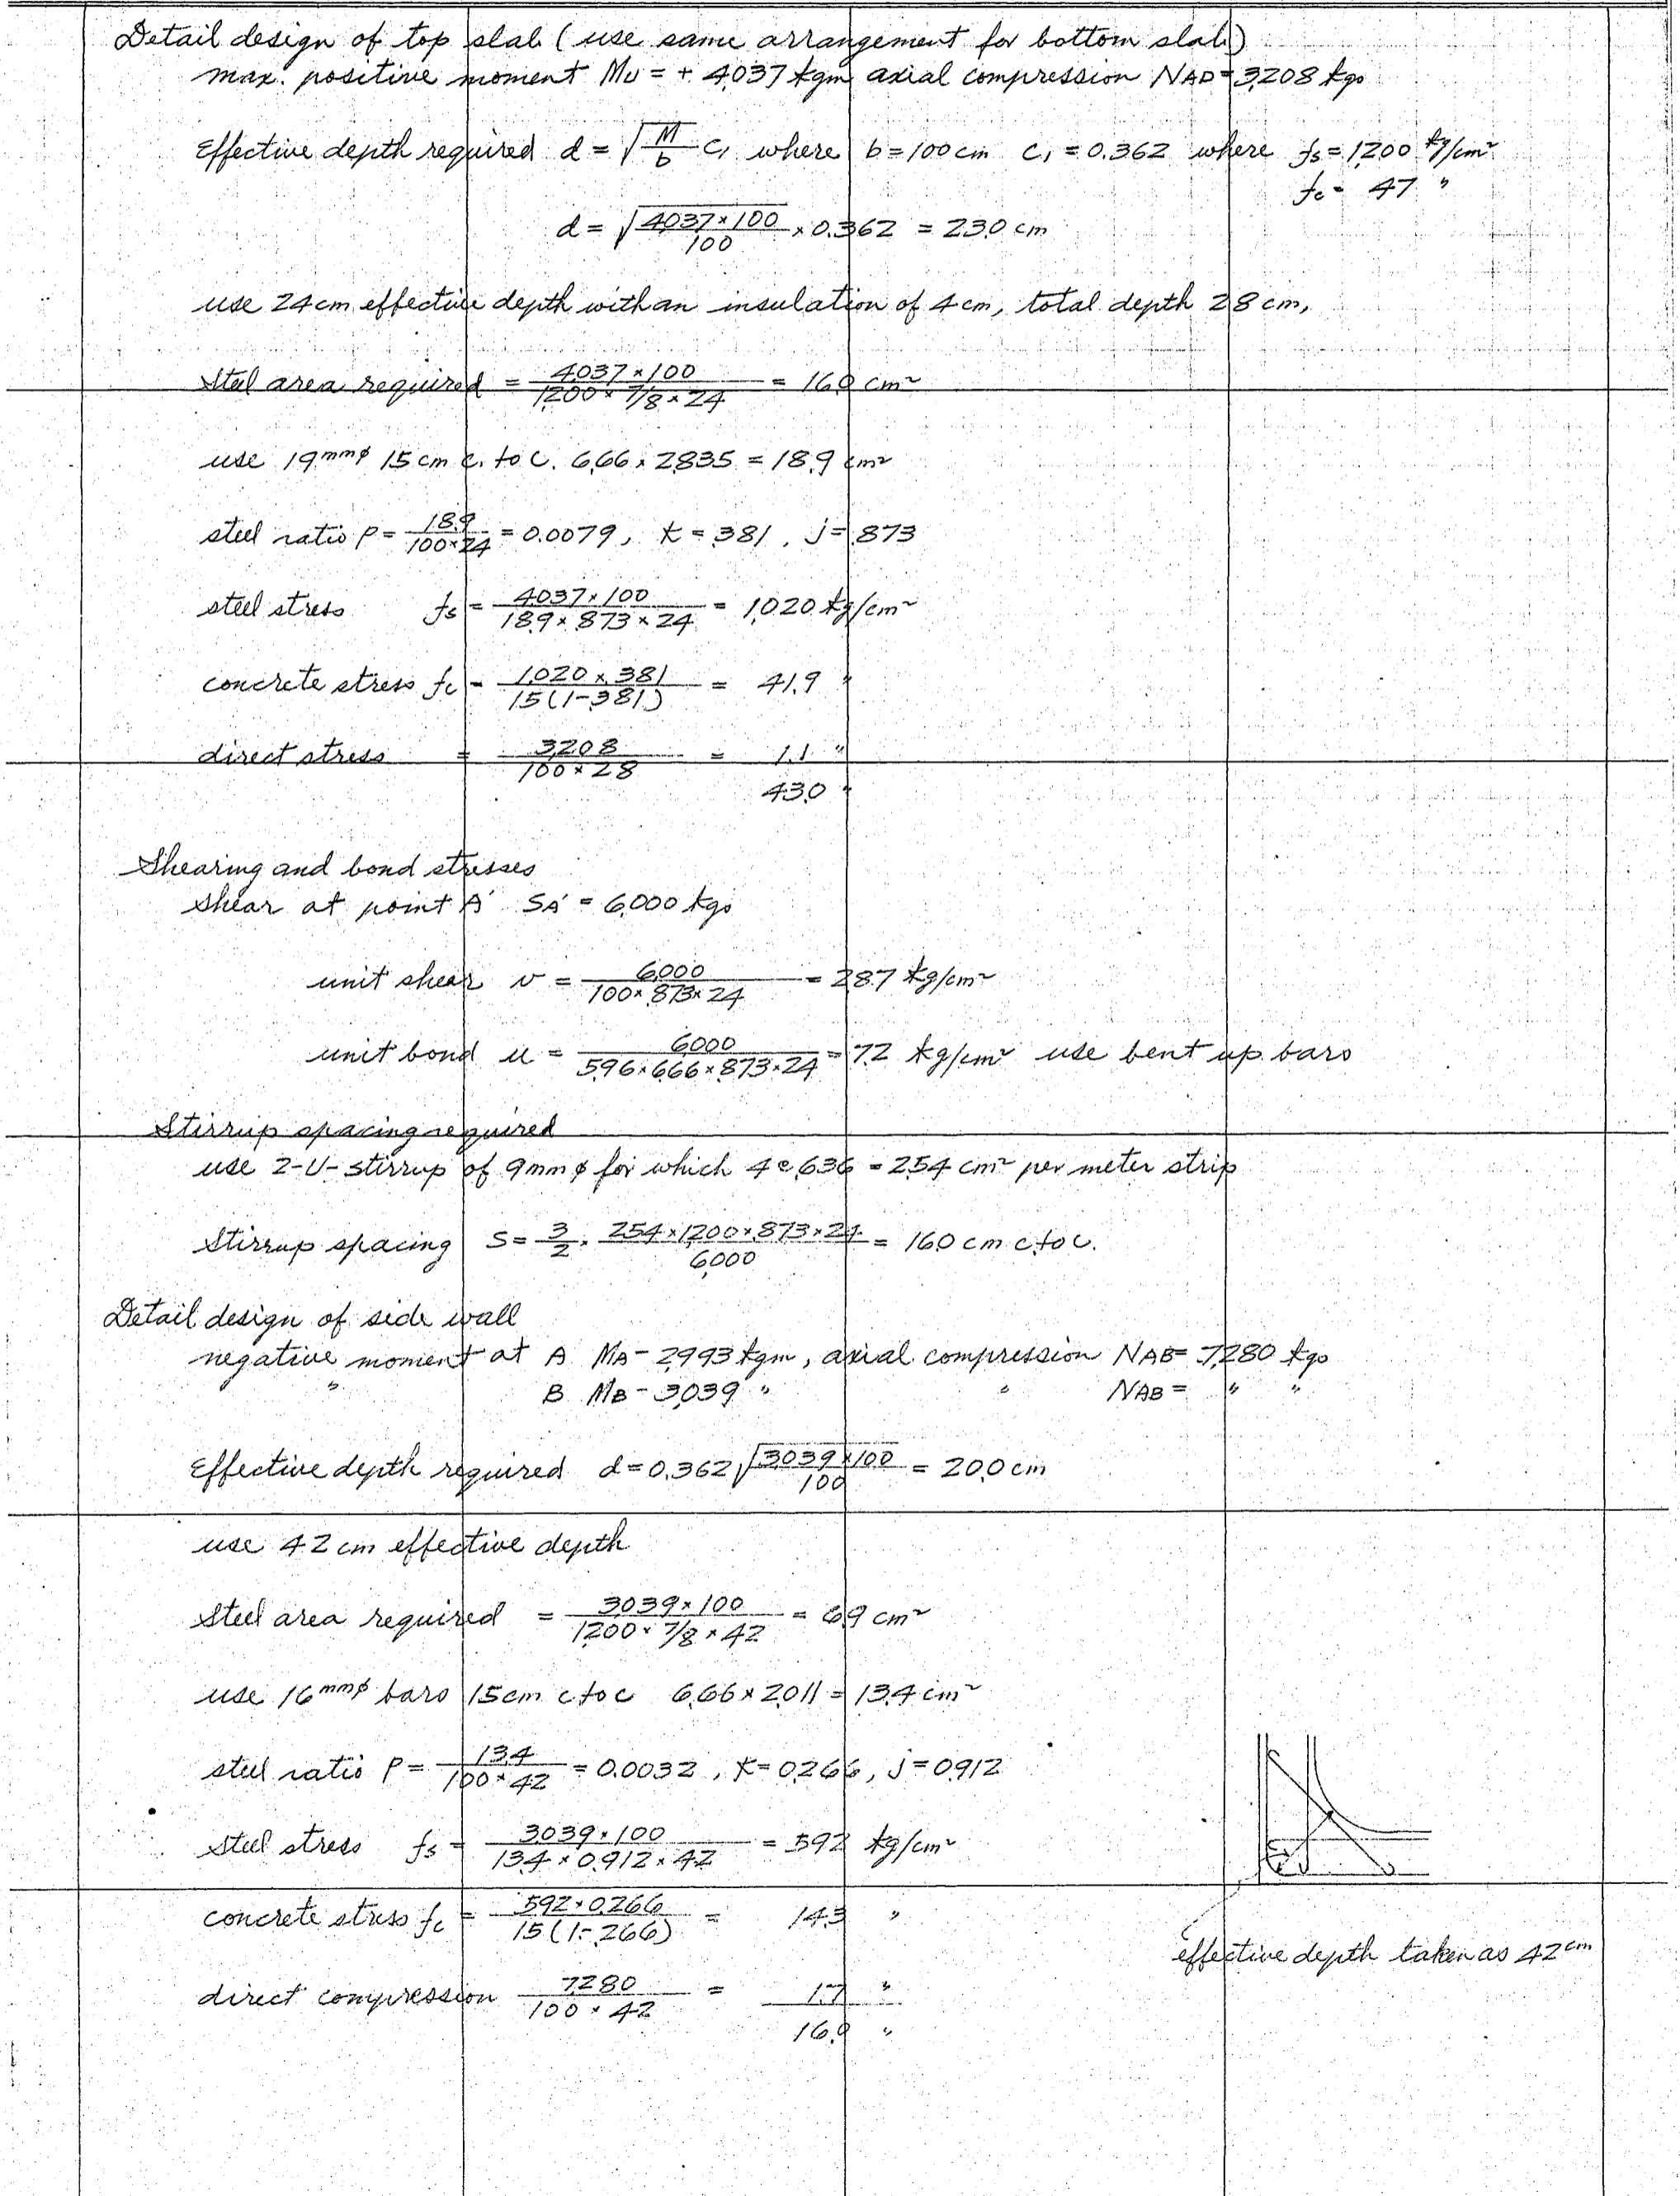 Detail design of top slab (use same arrangement for bottom slab)
max. positive moment Mu = + 4,037 kgm axial compression NAD = 3,208 kgs
Effective depth required d = √(M/b) C₁ where b = 100 cm C₁ = 0.362 where fs = 1,200 kg/cm²
fc = 47 "
d = √(4,037 × 100 / 100) × 0.362 = 23.0 cm
use 24 cm effective depth with an insulation of 4 cm, total depth 28 cm,
Steel area required = 4,037 × 100 / 1,200 × 7/8 × 24 = 16.0 cm²
use 19 mmφ 15 cm c. to c. 6.66 × 2.835 = 18.9 cm²
steel ratio p = 18.9 / 100 × 24 = 0.0079, k = .381, j = .873
steel stress fs = 4,037 × 100 / 18.9 × .873 × 24 = 1,020 kg/cm²
concrete stress fc = 1,020 × .381 / 15 (1 - .381) = 41.9 "
direct stress = 3,208 / 100 × 28 = 1.1 "
43.0 "
Shearing and bond stresses
Shear at point A' SA' = 6,000 kgs
unit shear v = 6,000 / 100 × .873 × 24 = 2.87 kg/cm²
unit bond u = 6,000 / 5.96 × 6.66 × .873 × 24 = 7.2 kg/cm² use bent up bars
Stirrup spacing required
use 2-U-stirrup of 9 mmφ for which 4 @ .636 = 2.54 cm² per meter strip
Stirrup spacing S = 3/2 · 2.54 × 1,200 × .873 × 24 / 6,000 = 16.0 cm c. to c.
Detail design of side wall
negative moment at A MA - 2,993 kgm, axial compression NAB = 7,280 kgs
" B MB - 3,039 " " NAB = " "
Effective depth required d = 0.362 √(3,039 × 100 / 100) = 20.0 cm
use 42 cm effective depth
Steel area required = 3,039 × 100 / 1,200 × 7/8 × 42 = 6.9 cm²
use 16 mmφ bars 15 cm c to c 6.66 × 2.011 = 13.4 cm²
steel ratio p = 13.4 / 100 × 42 = 0.0032, k = 0.266, j = 0.912
steel stress fs = 3,039 × 100 / 13.4 × 0.912 × 42 = 592 kg/cm²
concrete stress fc = 592 × 0.266 / 15 (1 - .266) = 14.3 "
effective depth taken as 42 cm
direct compression 7,280 / 100 × 42 = 1.7 "
16.0 "